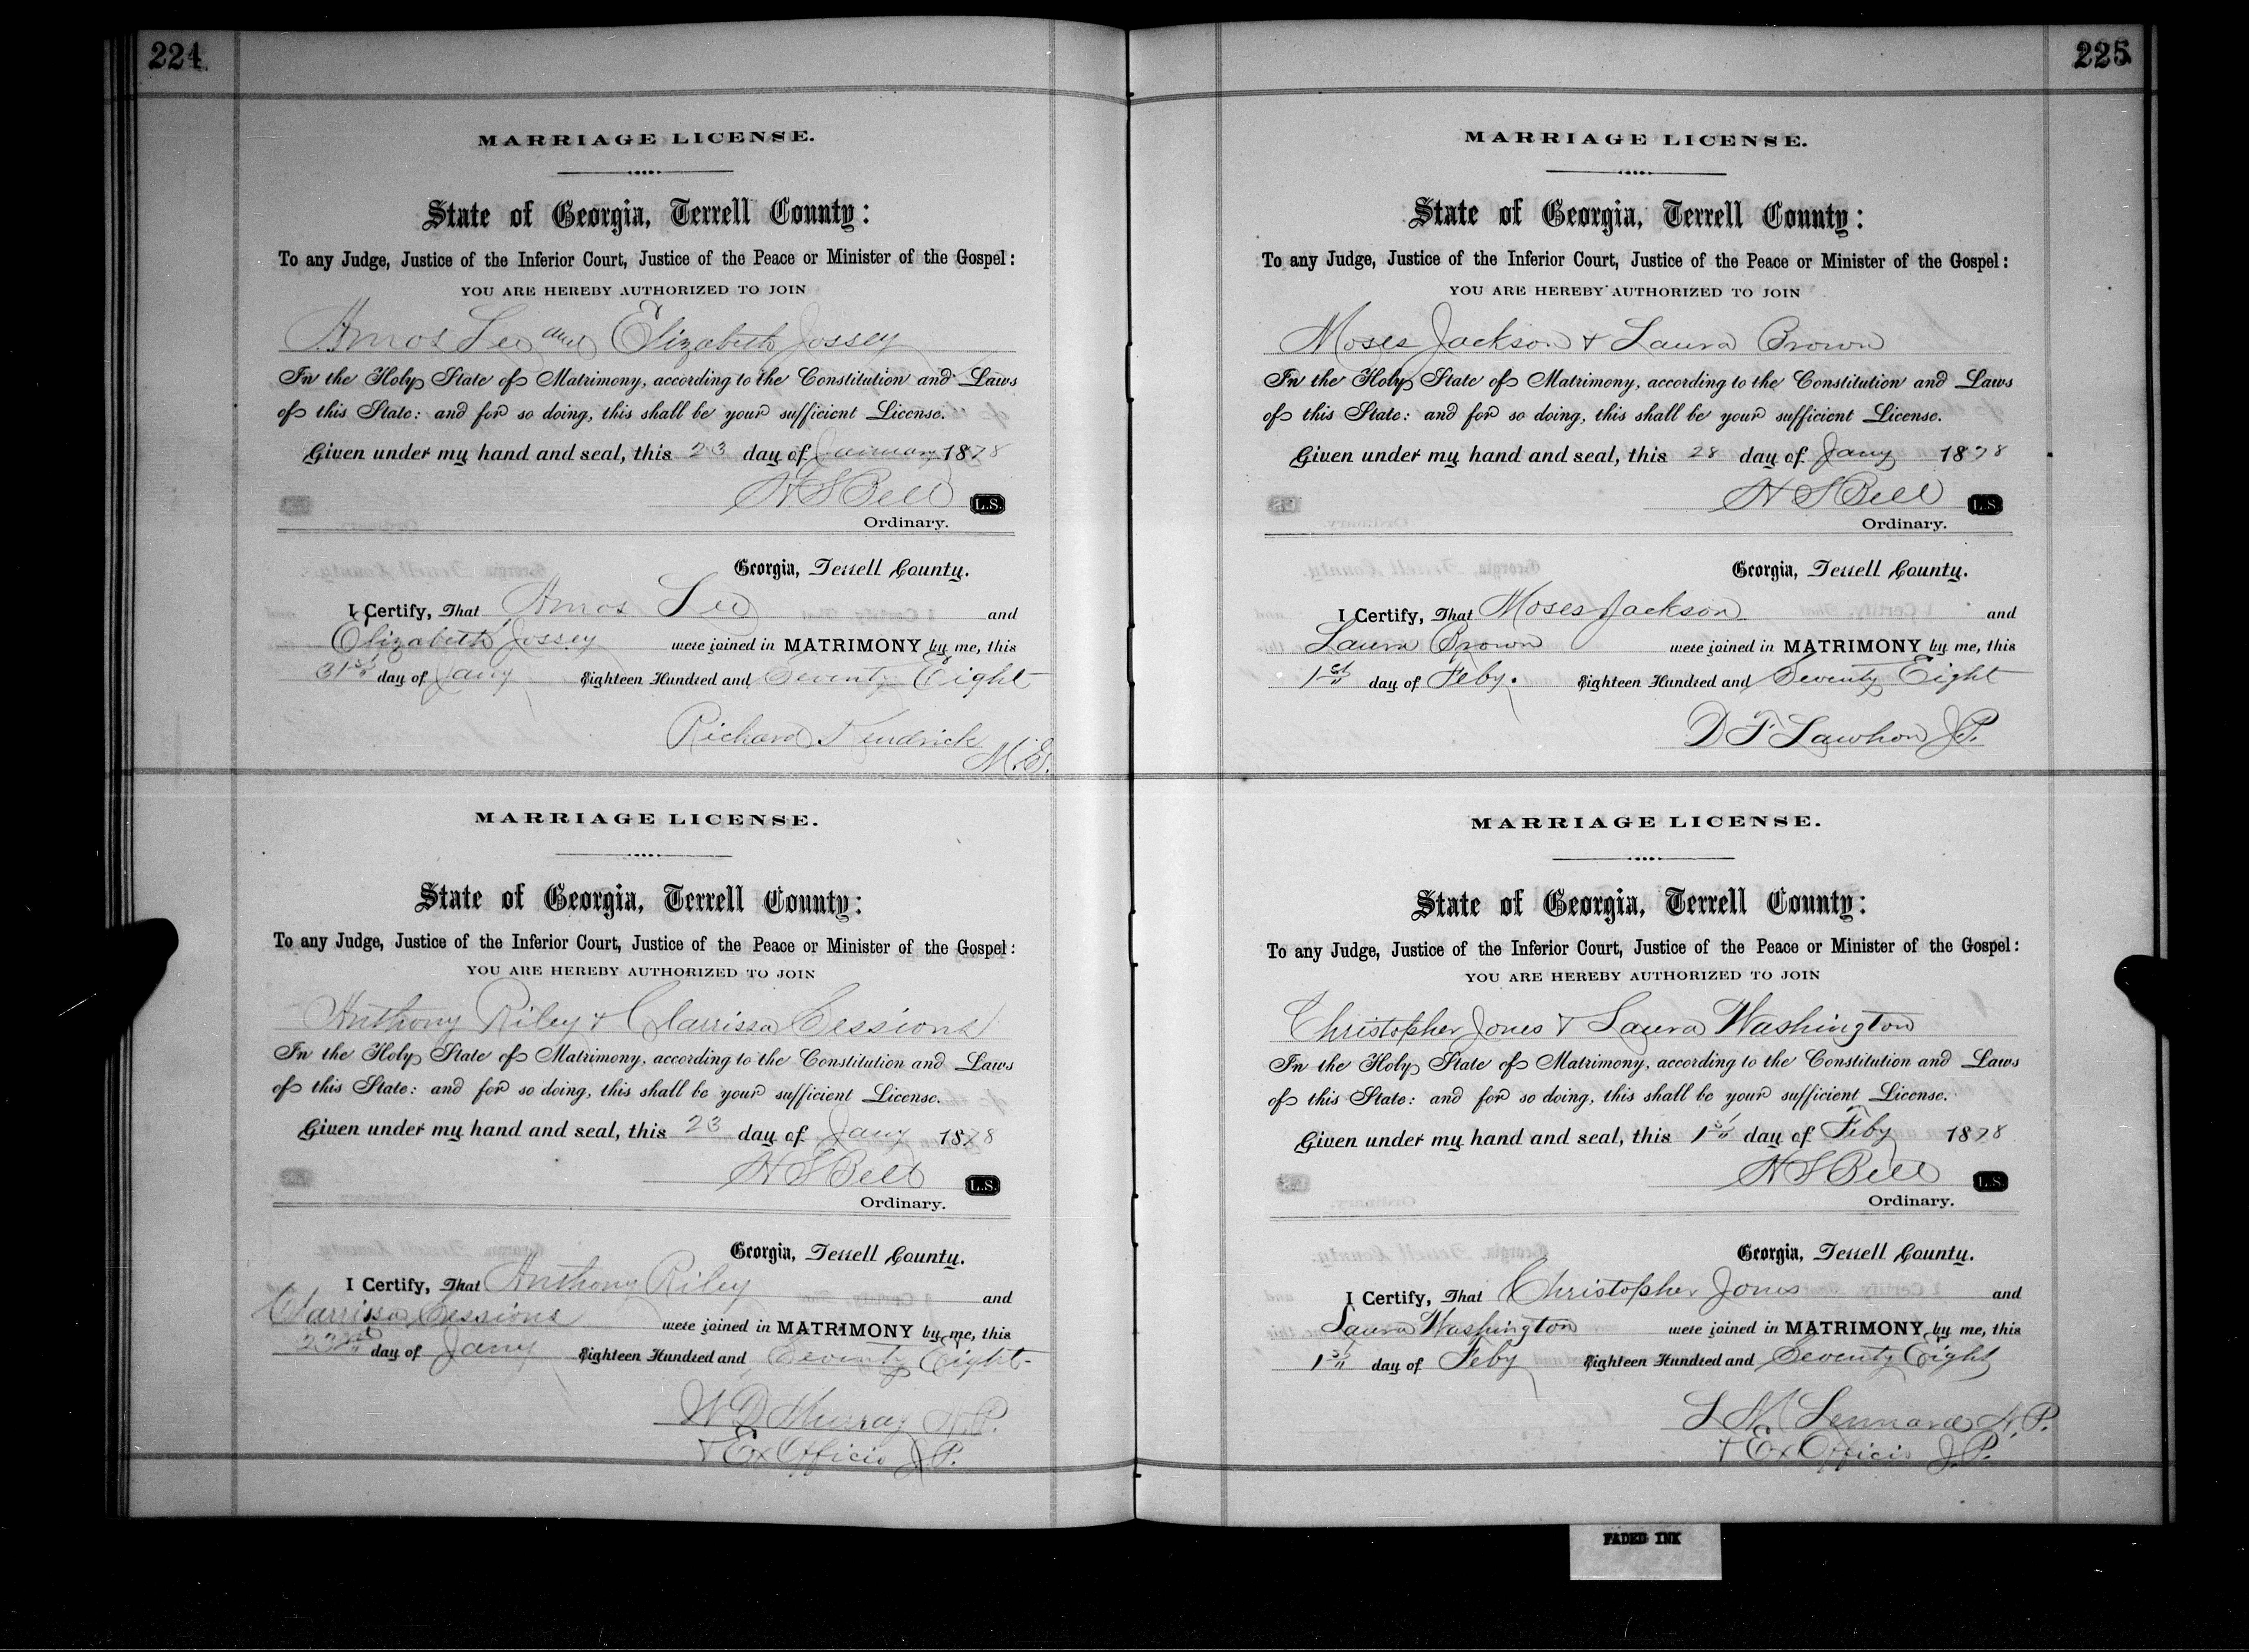 224
MARRIAGE LICENSE.
State of Georgia, Terrell County:
To any Judge, Justice of the Inferior Court, Justice of the Peace or Minister of the Gospel:
YOU ARE HEREBY AUTHORIZED TO JOIN
Amos Lee and Elizabeth Jossey
In the Holy State of Matrimony, according to the Constitution and Laws
of this State: and for so doing, this shall be your sufficient License.
Given under my hand and seal, this 23 day of January 1878
H S Bell L.S.
Ordinary.
Georgia, Terrell County.
I Certify, That Amos Lee and
Elizabeth Jossey were joined in MATRIMONY by me, this
31st day of Jany Eighteen Hundred and Seventy Eight
Richard Kendrick
M.G.
MARRIAGE LICENSE.
State of Georgia, Terrell County:
To any Judge, Justice of the Inferior Court, Justice of the Peace or Minister of the Gospel:
YOU ARE HEREBY AUTHORIZED TO JOIN
Anthony Riley & Clarrissa Cessions
In the Holy State of Matrimony, according to the Constitution and Laws
of this State: and for so doing, this shall be your sufficient License.
Given under my hand and seal, this 23 day of Jany 1878
H S Bell L.S.
Ordinary.
Georgia, Terrell County.
I Certify, That Anthony Riley and
Clarrissa Cessions were joined in MATRIMONY by me, this
23rd day of Jany Eighteen Hundred and Seventy Eight
W D Murray N.P.
& Ex Officio J.P.
225
MARRIAGE LICENSE.
State of Georgia, Terrell County:
To any Judge, Justice of the Inferior Court, Justice of the Peace or Minister of the Gospel:
YOU ARE HEREBY AUTHORIZED TO JOIN
Moses Jackson & Laura Brown
In the Holy State of Matrimony, according to the Constitution and Laws
of this State: and for so doing, this shall be your sufficient License.
Given under my hand and seal, this 28 day of Jany 1878
H S Bell L.S.
Ordinary.
Georgia, Terrell County.
I Certify, That Moses Jackson and
Laura Brown were joined in MATRIMONY by me, this
1st day of Feby. Eighteen Hundred and Seventy Eight
D F Lawhon J.P.
MARRIAGE LICENSE.
State of Georgia, Terrell County:
To any Judge, Justice of the Inferior Court, Justice of the Peace or Minister of the Gospel:
YOU ARE HEREBY AUTHORIZED TO JOIN
Christopher Jones & Laura Washington
In the Holy State of Matrimony, according to the Constitution and Laws
of this State: and for so doing, this shall be your sufficient License.
Given under my hand and seal, this 1st day of Feby 1878
H S Bell L.S.
Ordinary.
Georgia, Terrell County.
I Certify, That Christopher Jones and
Laura Washington were joined in MATRIMONY by me, this
1st day of Feby Eighteen Hundred and Seventy Eight
L M Lennard N.P.
& Ex Officio J.P.
FADED INK